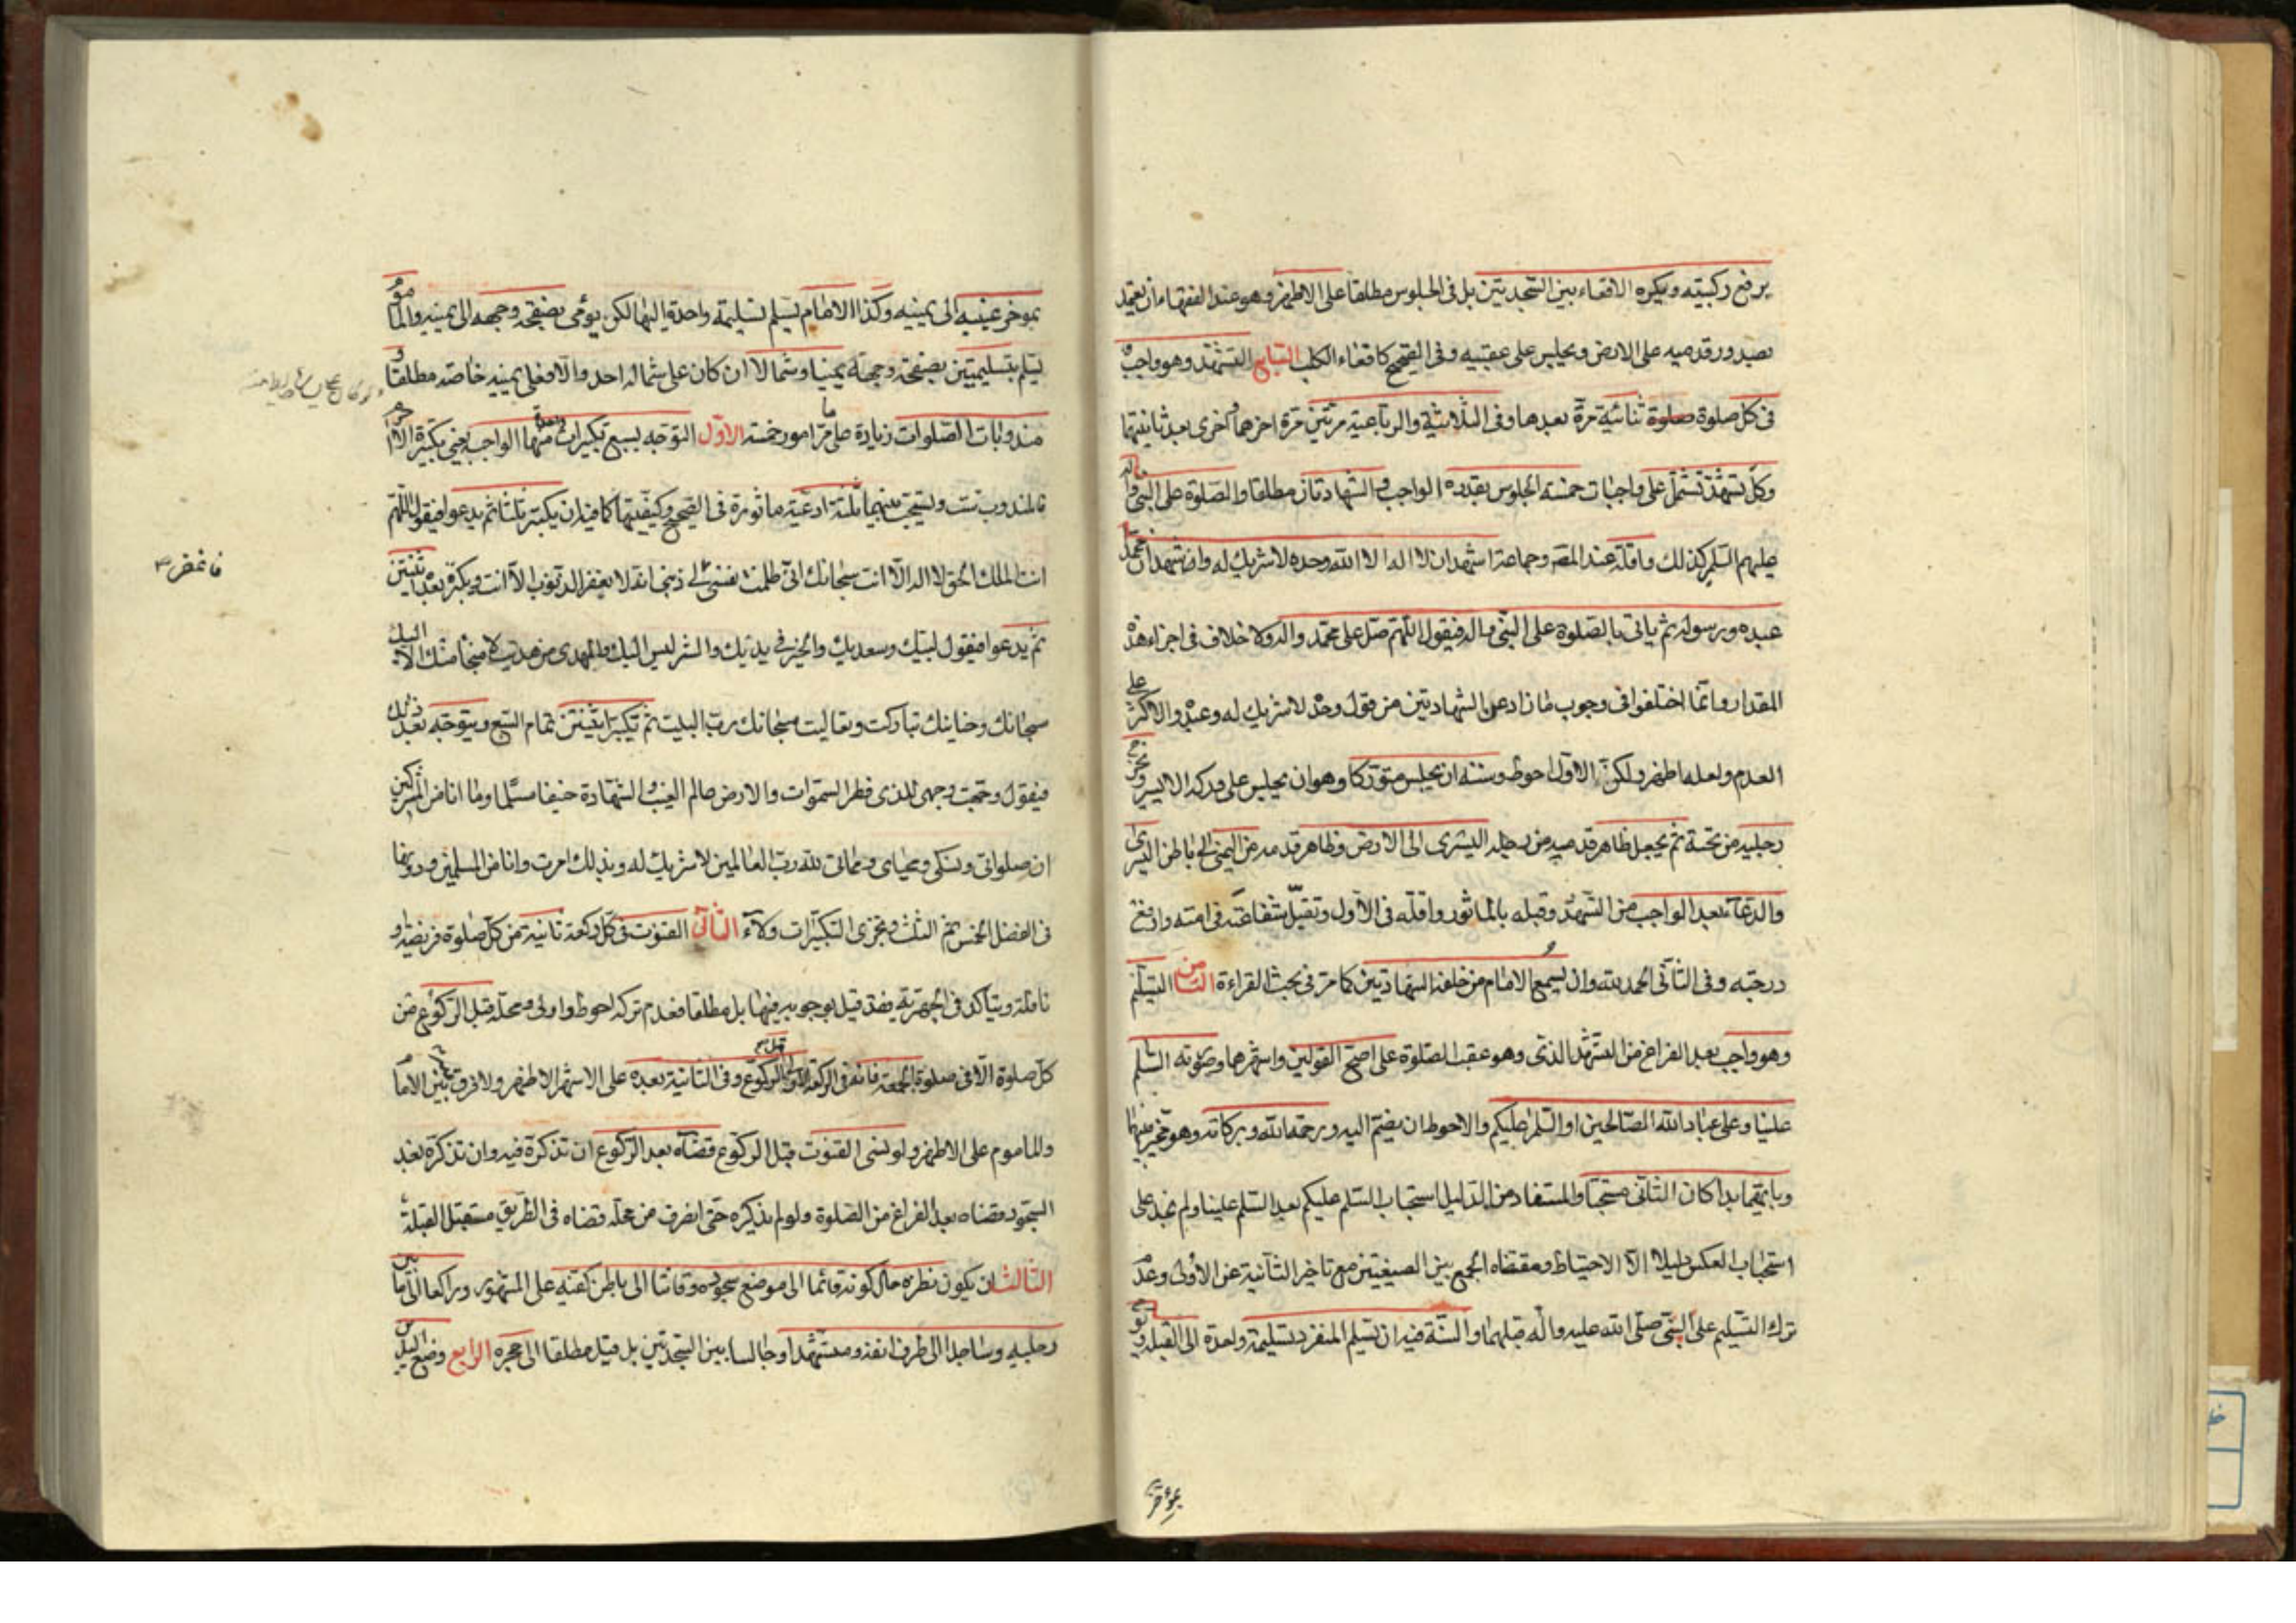 يرفع ركبتيه ويكره الاقعاء بين السجدتين بل فى الجلوس مطلقا على الاظهر وهو عند الفقهاء ان يعتمد
بصدور قدميه على الارض ويجلس على عقبيه وفى الصحيح كاقعاء الكلب السابع التشهد وهو واجب
فى كل صلوة صلوة ثنائية مرة بعدها وفى الثلاثية والرباعية مرتين مرة اخرهما واخرى بعد ثانيتها
وكل تشهد تشتمل على واجبات خمسة الجلوس بقدره الواجب والشهادتان مطلقا والصلوة على النبى واله
عليهم السلم كذلك واقله عند المصر وجماعة اشهد ان لا اله الا الله وحده لا شريك له واشهد ان محمدا
عبده ورسوله ثم ياتى بالصلوة على النبى واله فيقول اللهم صل على محمد واله ولا خلاف فى اجزاء هذه
المقدار وانما اختلفوا فى وجوب ما زاد على الشهادتين من قول وحده لا شريك له وعبده والاكثر على
العدم ولعله اظهر ولكن الاول احوط وسننه ان يجلس متوركا وهو ان يجلس على وركه الايسر ويخرج
رجليه من تحته ثم يجعل ظاهر قدميه من رجله اليسرى الى الارض وظاهر قدمه من اليمنى الى باطن اليسرى
والدعاء بعد الواجب من التشهد وقبله بالماثور واقله فى الاول وتقبل شفاعته فى امته وارفع
درجته وفى الثانى الحمد لله وان يسمع الامام من خلفه الشهادتين كما مر فى بحث القراءة الثامن التسليم
وهو واجب بعد الفراغ من التشهد الذى وهو عقب الصلوة على اصح القولين واشهرهما وصورته السلم
علينا وعلى عباد الله الصالحين او السلم عليكم والاحوط ان يضم اليه ورحمة الله وبركاته وهو مخير فيهما
وبايهما بدا كان الثانى مستحبا والمستفاد من الدليل استحباب السلم عليكم بعد السلم علينا ولم نجد على
استحباب العكس دليلا الا الاحتياط ومقتضاه الجمع بين الصيغتين مع تاخير الثانية عن الاولى وعدم
ترك التسليم على النبى صلى الله عليه واله قبلهما والسنة فيه ان يسلم المنفرد تسليمة واحدة الى القبلة ويومى
بمؤخر
بموخر عينيه الى يمينه وكذا الامام يسلم تسليمة واحدة اليها لكن يومى بصفحة وجهه الى يمينه والماموم
يسلم بتسليمتين بصفحة وجهه يمينا وشمالا ان كان على شماله احد والا فعلى يمينه خاصة مطلقا و
مندوبات الصلوات زيادة على ما مر امور خمسة الاول التوجه بسبع تكبيرات منها الواجبة يعنى تكبيرة الاحرام
فالمندوب ست ويستحب بينهما ثلثة ادعية ماثورة فى الصحيح وكيفيتها كما فيه ان يكبر ثلثا ثم يدعوا فيقول اللهم
انت الملك الحق لا اله الا انت سبحانك انى ظلمت نفسى لى ذنبى انه لا يغفر الذنوب الا انت ويكبر بعد ثنتين
فاغفر
ثم يدعوا فيقول لبيك وسعديك والخير فى يديك والشر ليس اليك والمهدى من هديت لا منجا منك الا اليك
سبحانك وحنانيك تباركت وتعاليت سبحانك رب البيت ثم تكبر اثنتين تمام السبع ويتوجه بعد ذلك
فيقول وجهت وجهى للذى فطر السموات والارض عالم الغيب والشهادة حنيفا مسلما وما انا من المشركين
ان صلواتى ونسكى ومحياى ومماتى لله رب العالمين لا شريك له وبذلك امرت وانا من المسلمين ودونها
فى الفضل الخمس ثم الثلث ويجزى التكبيرات ولاء الثانى القنوت فى كل ركعة ثانية من كل صلوة فريضة او
نافلة ويتاكد فى الجهرية فقد قيل بوجوبه فيها بل مطلقا فعدم تركه احوط واولى ومحله قبل الركوع من
كل صلوة الا فى صلوة الجمعة فانه فى الركعة الاولى قبل الركوع وفى الثانية بعده على الاشهر الاظهر ولا فرق بين الامام
والماموم على الاظهر ولو نسى القنوت قبل الركوع قضاه بعد الركوع ان تذكره فيه وان تذكره بعد
السجود قضاه بعد الفراغ من الصلوة ولو لم يذكره حتى انصرف من محله قضاه فى الطريق مستقبل القبلة
الثالث ان يكون نظره حال كونه قائما الى موضع سجوده وقانتا الى باطن كفيه على المشهور وراكعا الى ما بين
رجليه وساجدا الى طرف انفه ومتشهدا وجالسا بين السجدتين بل قيل مطلقا الى حجره الرابع وضع اليدين